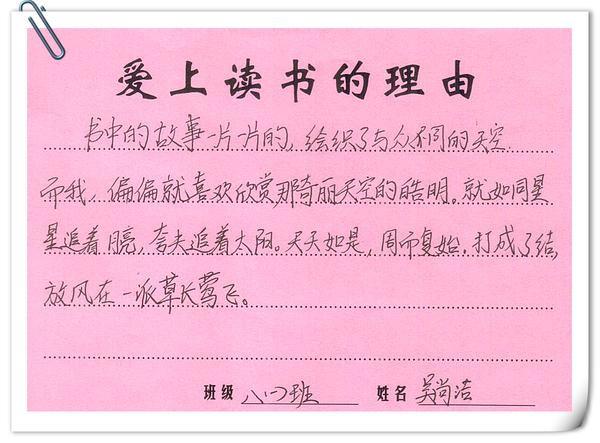 爱上读书的理由
书中的故事一片一片的，绘织了与众不同的天空.
而我，偏偏就喜欢欣赏那奇丽天空的皓明。就如同星
星追着月亮，夸夫追着太阳。天天如是，周而复始，打成了结，
放风在一派草长莺飞。
班级 八·(7)班 姓名 吴尚洁